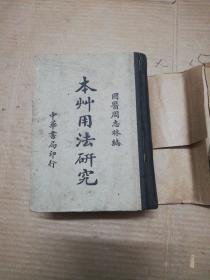 國医周志林編
本艸用法研究
中華書局印行